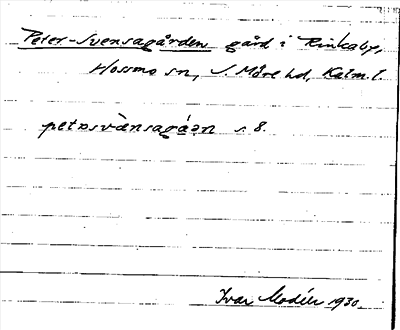 Peter-Svensagården gård i Rinkaby,
Hossmo sn, S. Möre hd, Kalm. l.
petəsvænsagáən s. 8.
Ivar Modéer 1930